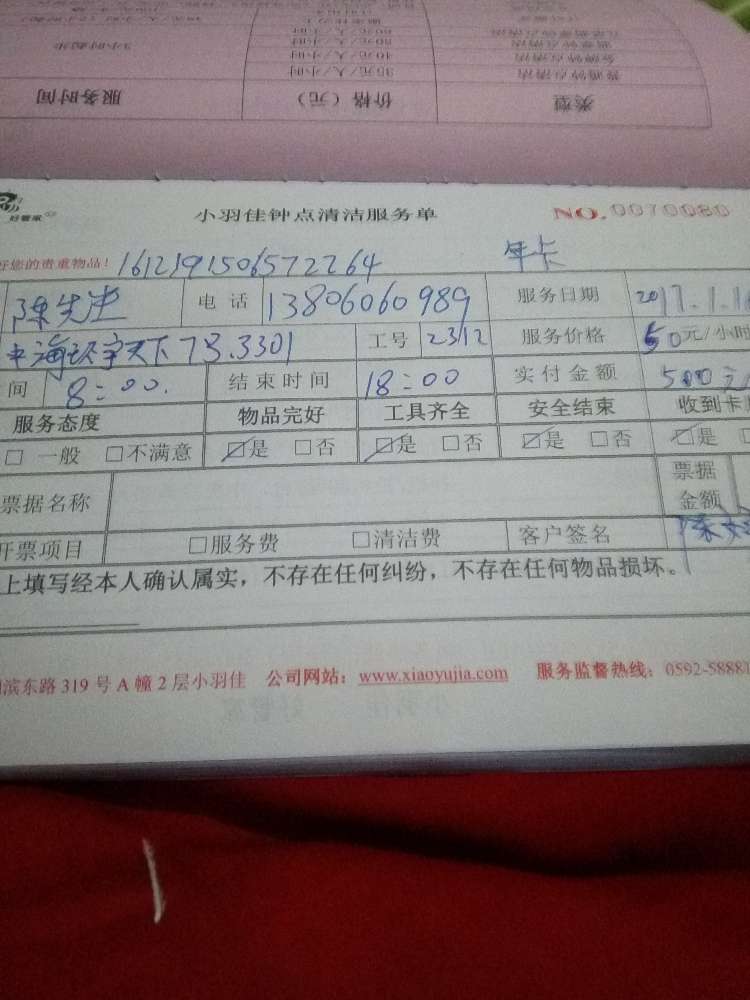 类型 价格（元） 服务时间
普通钟点清洁 35元/人/小时
金牌钟点清洁 40元/人/小时 3小时起步
50元/人/小时
60元/人/小时
好管家
小羽佳钟点清洁服务单 NO.0070080
好您的贵重物品！ 1612191506572264 年卡
陈先生 电话 13806060989 服务日期 2017.1.1
中海环宇天下 7号.3301 工号 2312 服务价格 50元/小时
间 8:00. 结束时间 18:00 实付金额 500元
服务态度 物品完好 工具齐全 安全结束 收到卡
□ 一般 □不满意 ☑是 □否 ☑是 □否 ☑是 □否 ☑是
票据名称 票据金额
开票项目 □服务费 □清洁费 客户签名
上填写经本人确认属实，不存在任何纠纷，不存在任何物品损坏。
滨东路 319 号 A 幢 2 层小羽佳 公司网站：www.xiaoyujia.com 服务监督热线：0592-58881